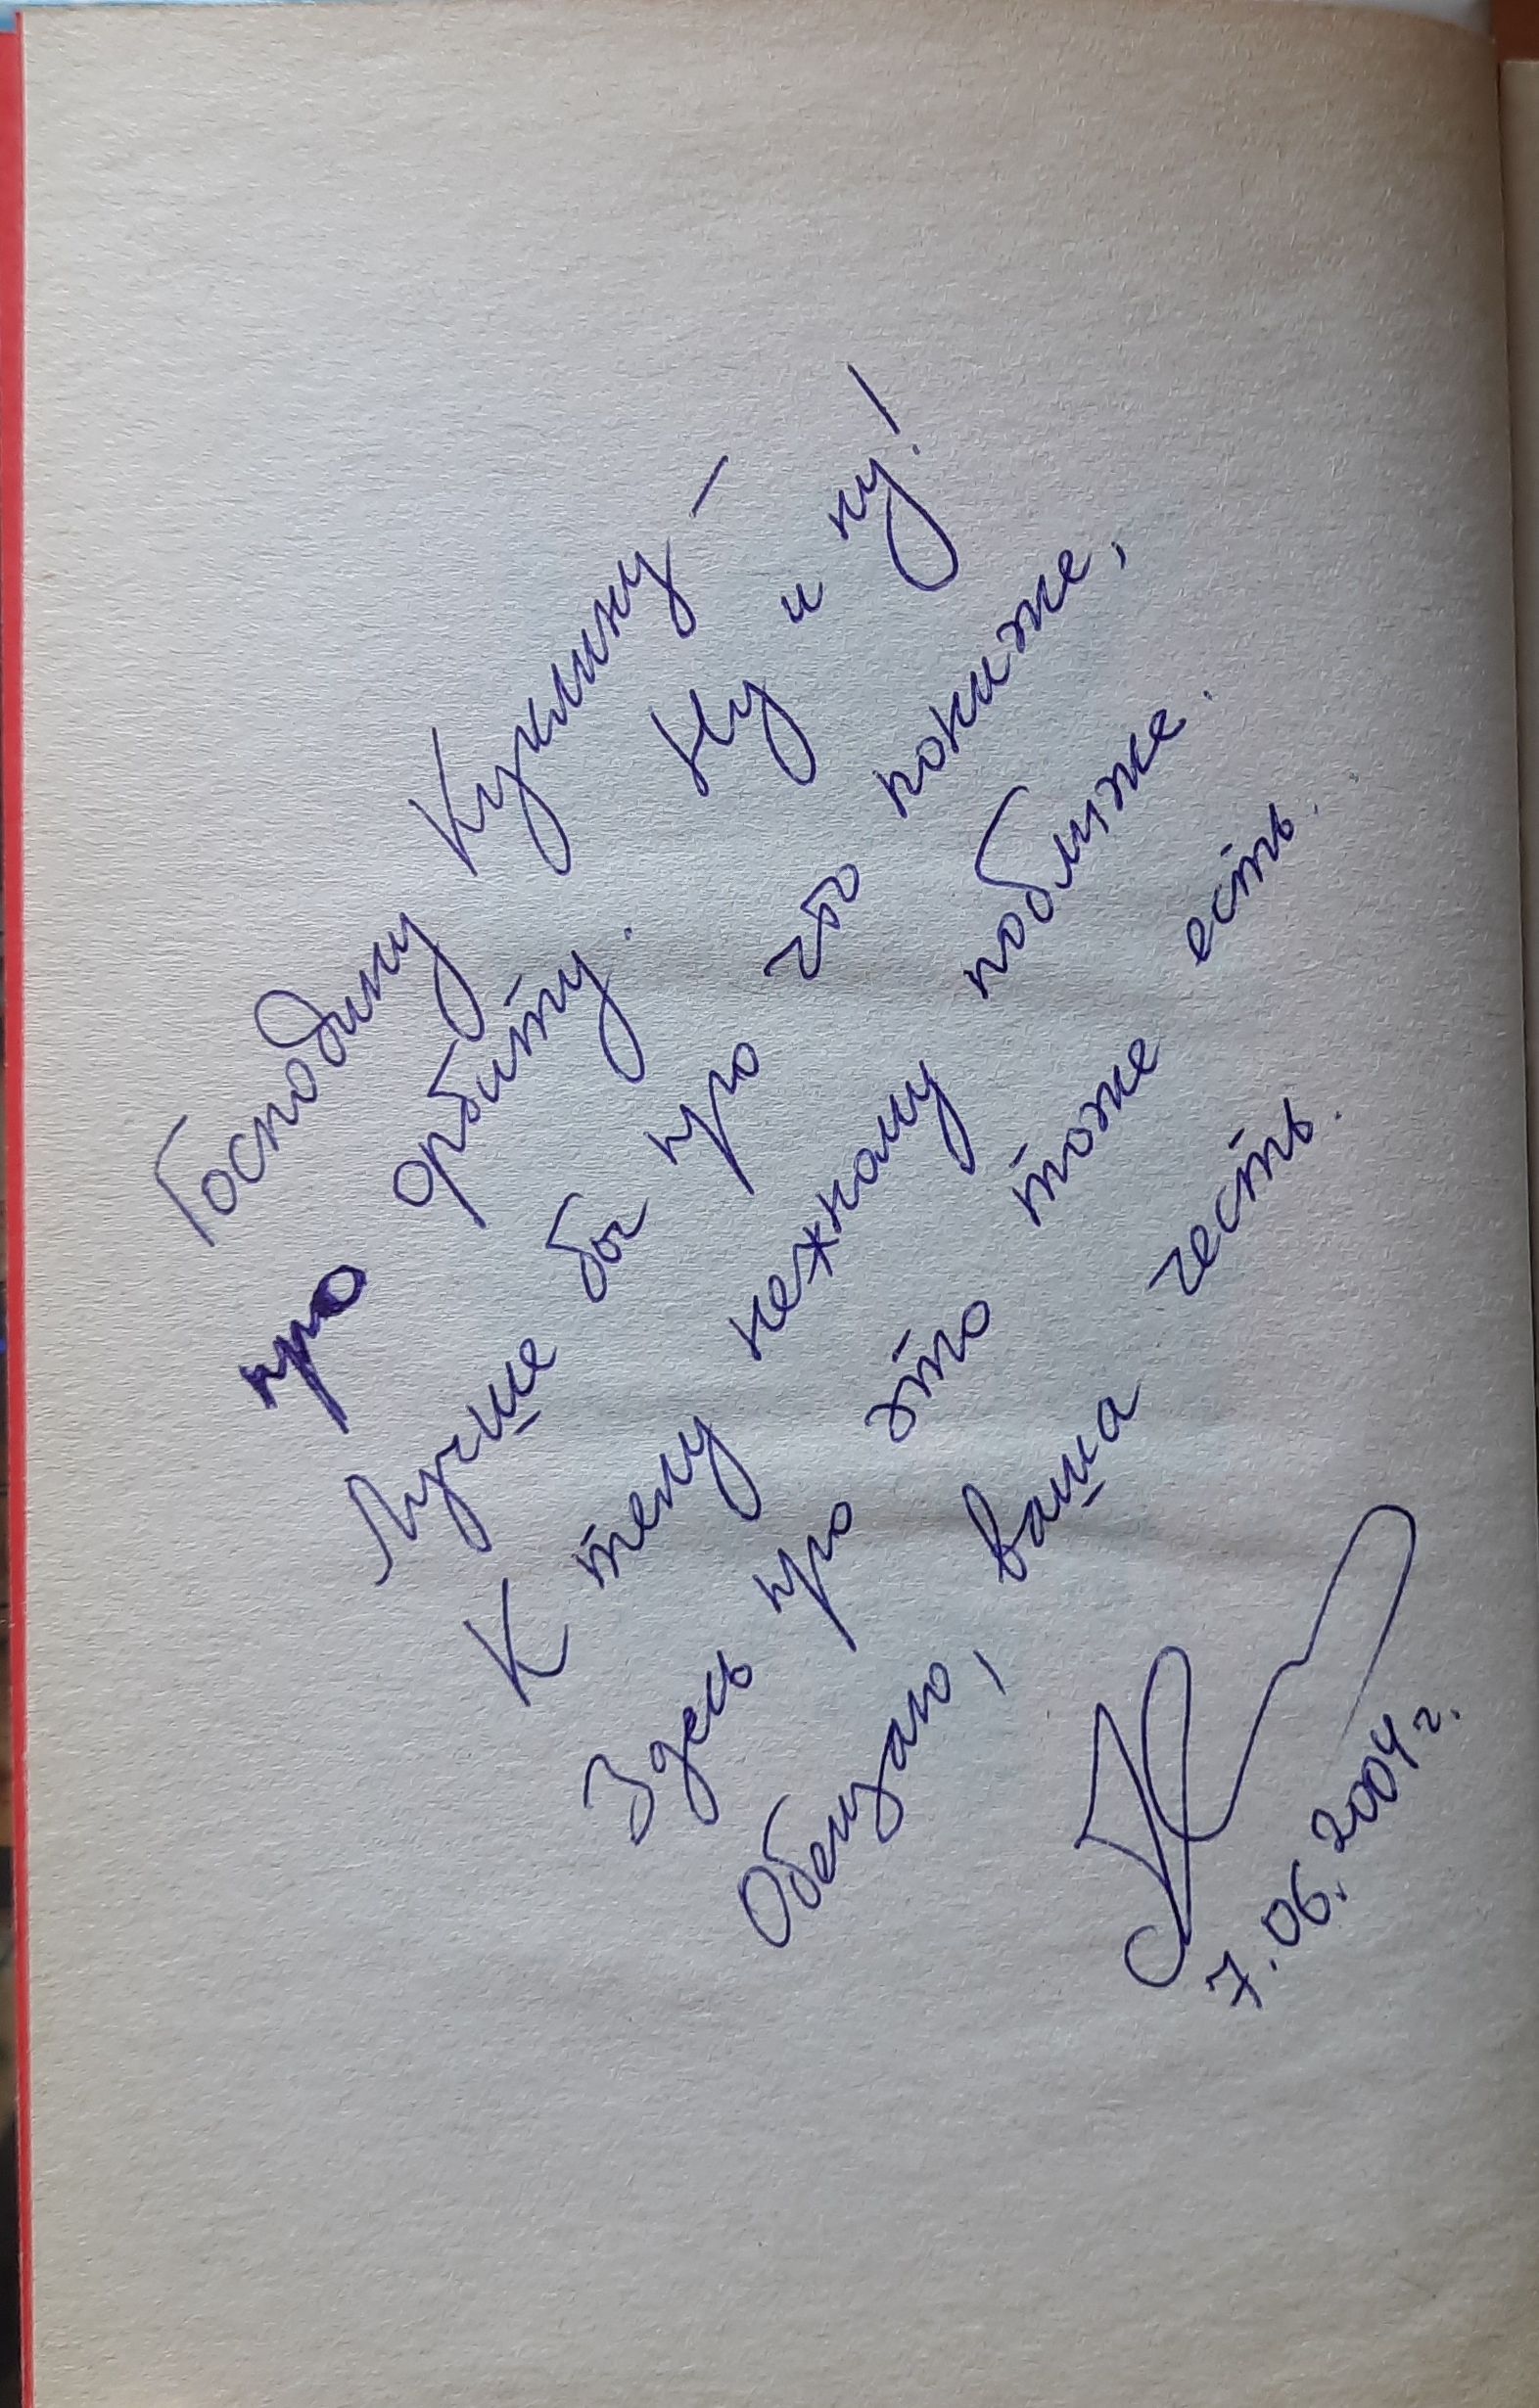 Господину Куклину –
про орбиту. Ну и ну!
Лучше бы про что пониже,
К телу нежному поближе.
Здесь про это тоже есть.
Обещаю, ваша честь.
7.06.2004 г.